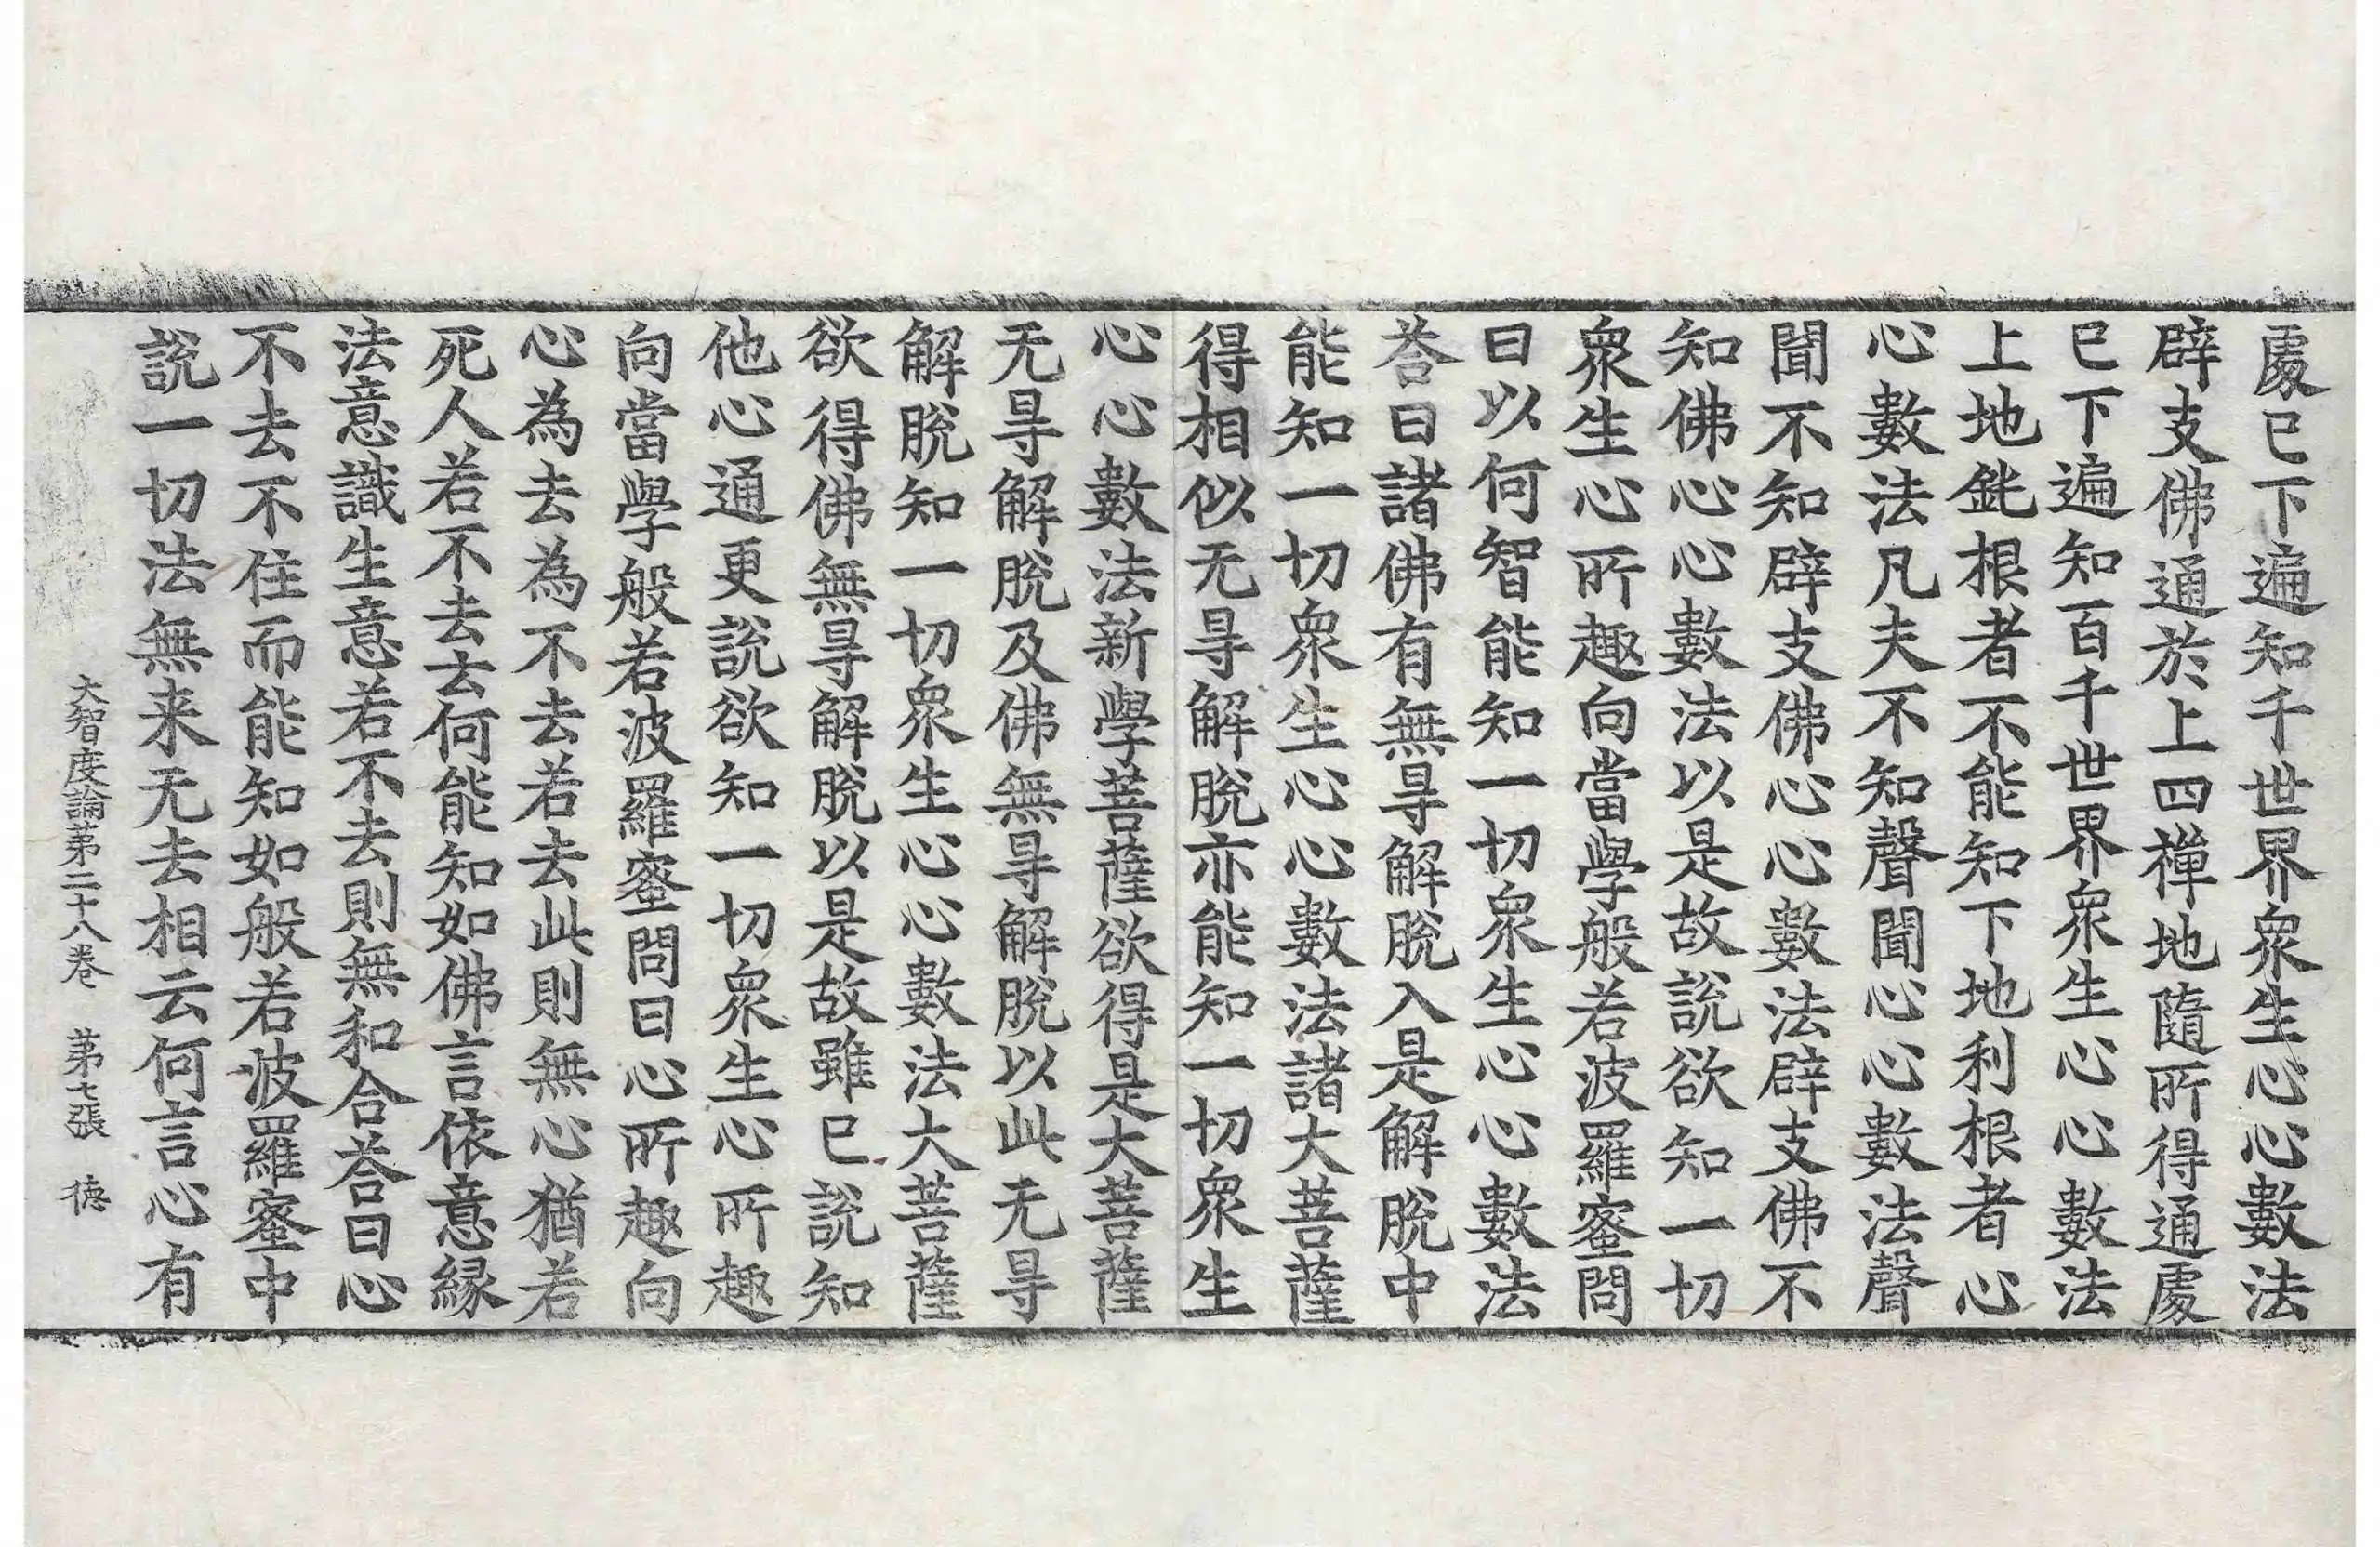 䖏已下遍知千世界衆生心心數法
辟支佛通於上四禪地隨所得通䖏
已下遍知百千世界衆生心心數法
上地鈍根者不能知下地利根者心
心數法凡夫不知聲聞心心數法聲
聞不知辟支佛心心數法辟支佛不
知佛心心數法以是故說欲知一切
衆生心所趣向當學般若波羅蜜問
曰以何智能知一切衆生心心數法
荅曰諸佛有無㝵解脫入是解脫中
能知一切衆生心心數法諸大菩薩
得相似无㝵解脫亦能知一切衆生
心心數法新學菩薩欲得是大菩薩
无㝵解脫及佛無㝵解脫以此无㝵
解脫知一切衆生心心數法大菩薩
欲得佛無㝵解脫以是故雖已說知
他心通更說欲知一切衆生心所趣
向當學般若波羅蜜問曰心所趣向
心為去為不去若去此則無心猶若
死人若不去云何能知如佛言依意緣
法意識生意若不去則無和合荅曰心
不去不住而能知如般若波羅蜜中
說一切法無来无去相云何言心有
大智度論第二十八卷　第七張　德